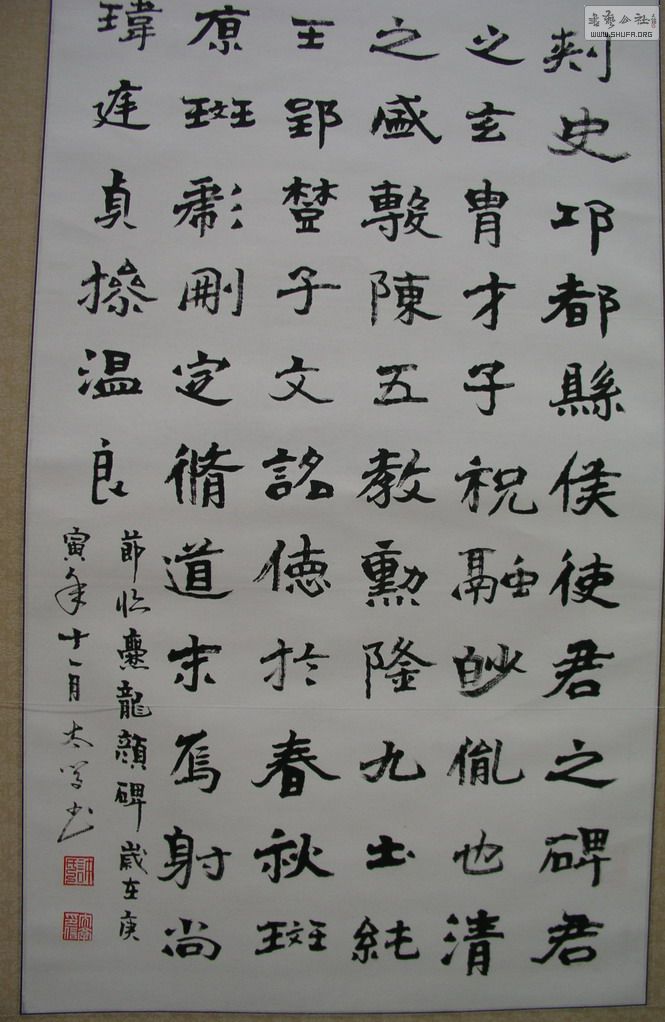 刾史邛都縣侯使君之碑君
之玄胄才子祝融眇胤也清
之盛敷陳五教勳隆九土純
王郢楚子文詺德於春秋斑
原斑彪刪定脩道末焉射尚
瑋庭貞操温良
節临爨龍顏碑歲在庚
寅年十一月太学书
書藝公社
WWW.SHUFA.ORG